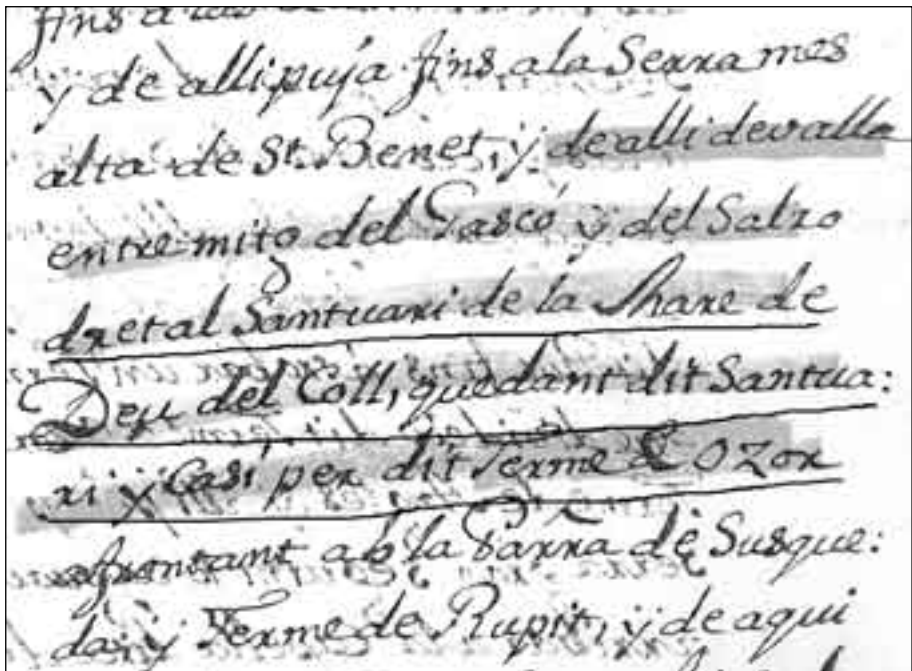 fins a las
y de alli puja fins ala Serra mes
alta de St. Benet, y de alli devalla
entre mitg del Gascó y del Salro
dret al Santuari de la Mare de
Deu del Coll, quedant dit Santua:
ri y Casi per dit Terme de Ozor
afrontant ab la Parra de Susque:
da, y Terme de Rupit, y de aqui